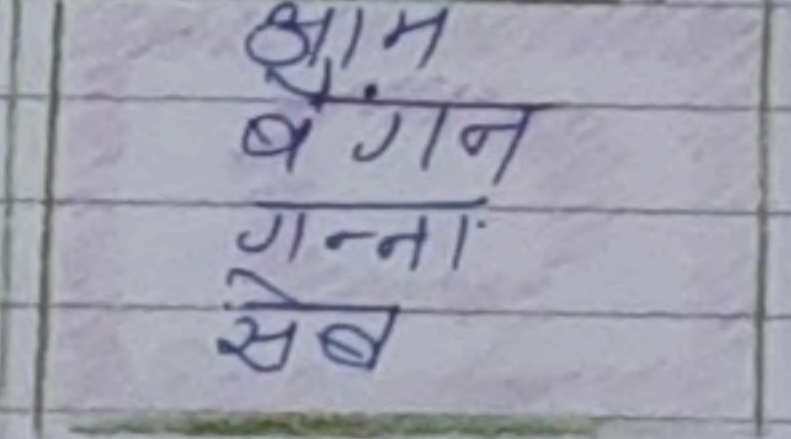 आम
बैंगन
गन्ना
सेब